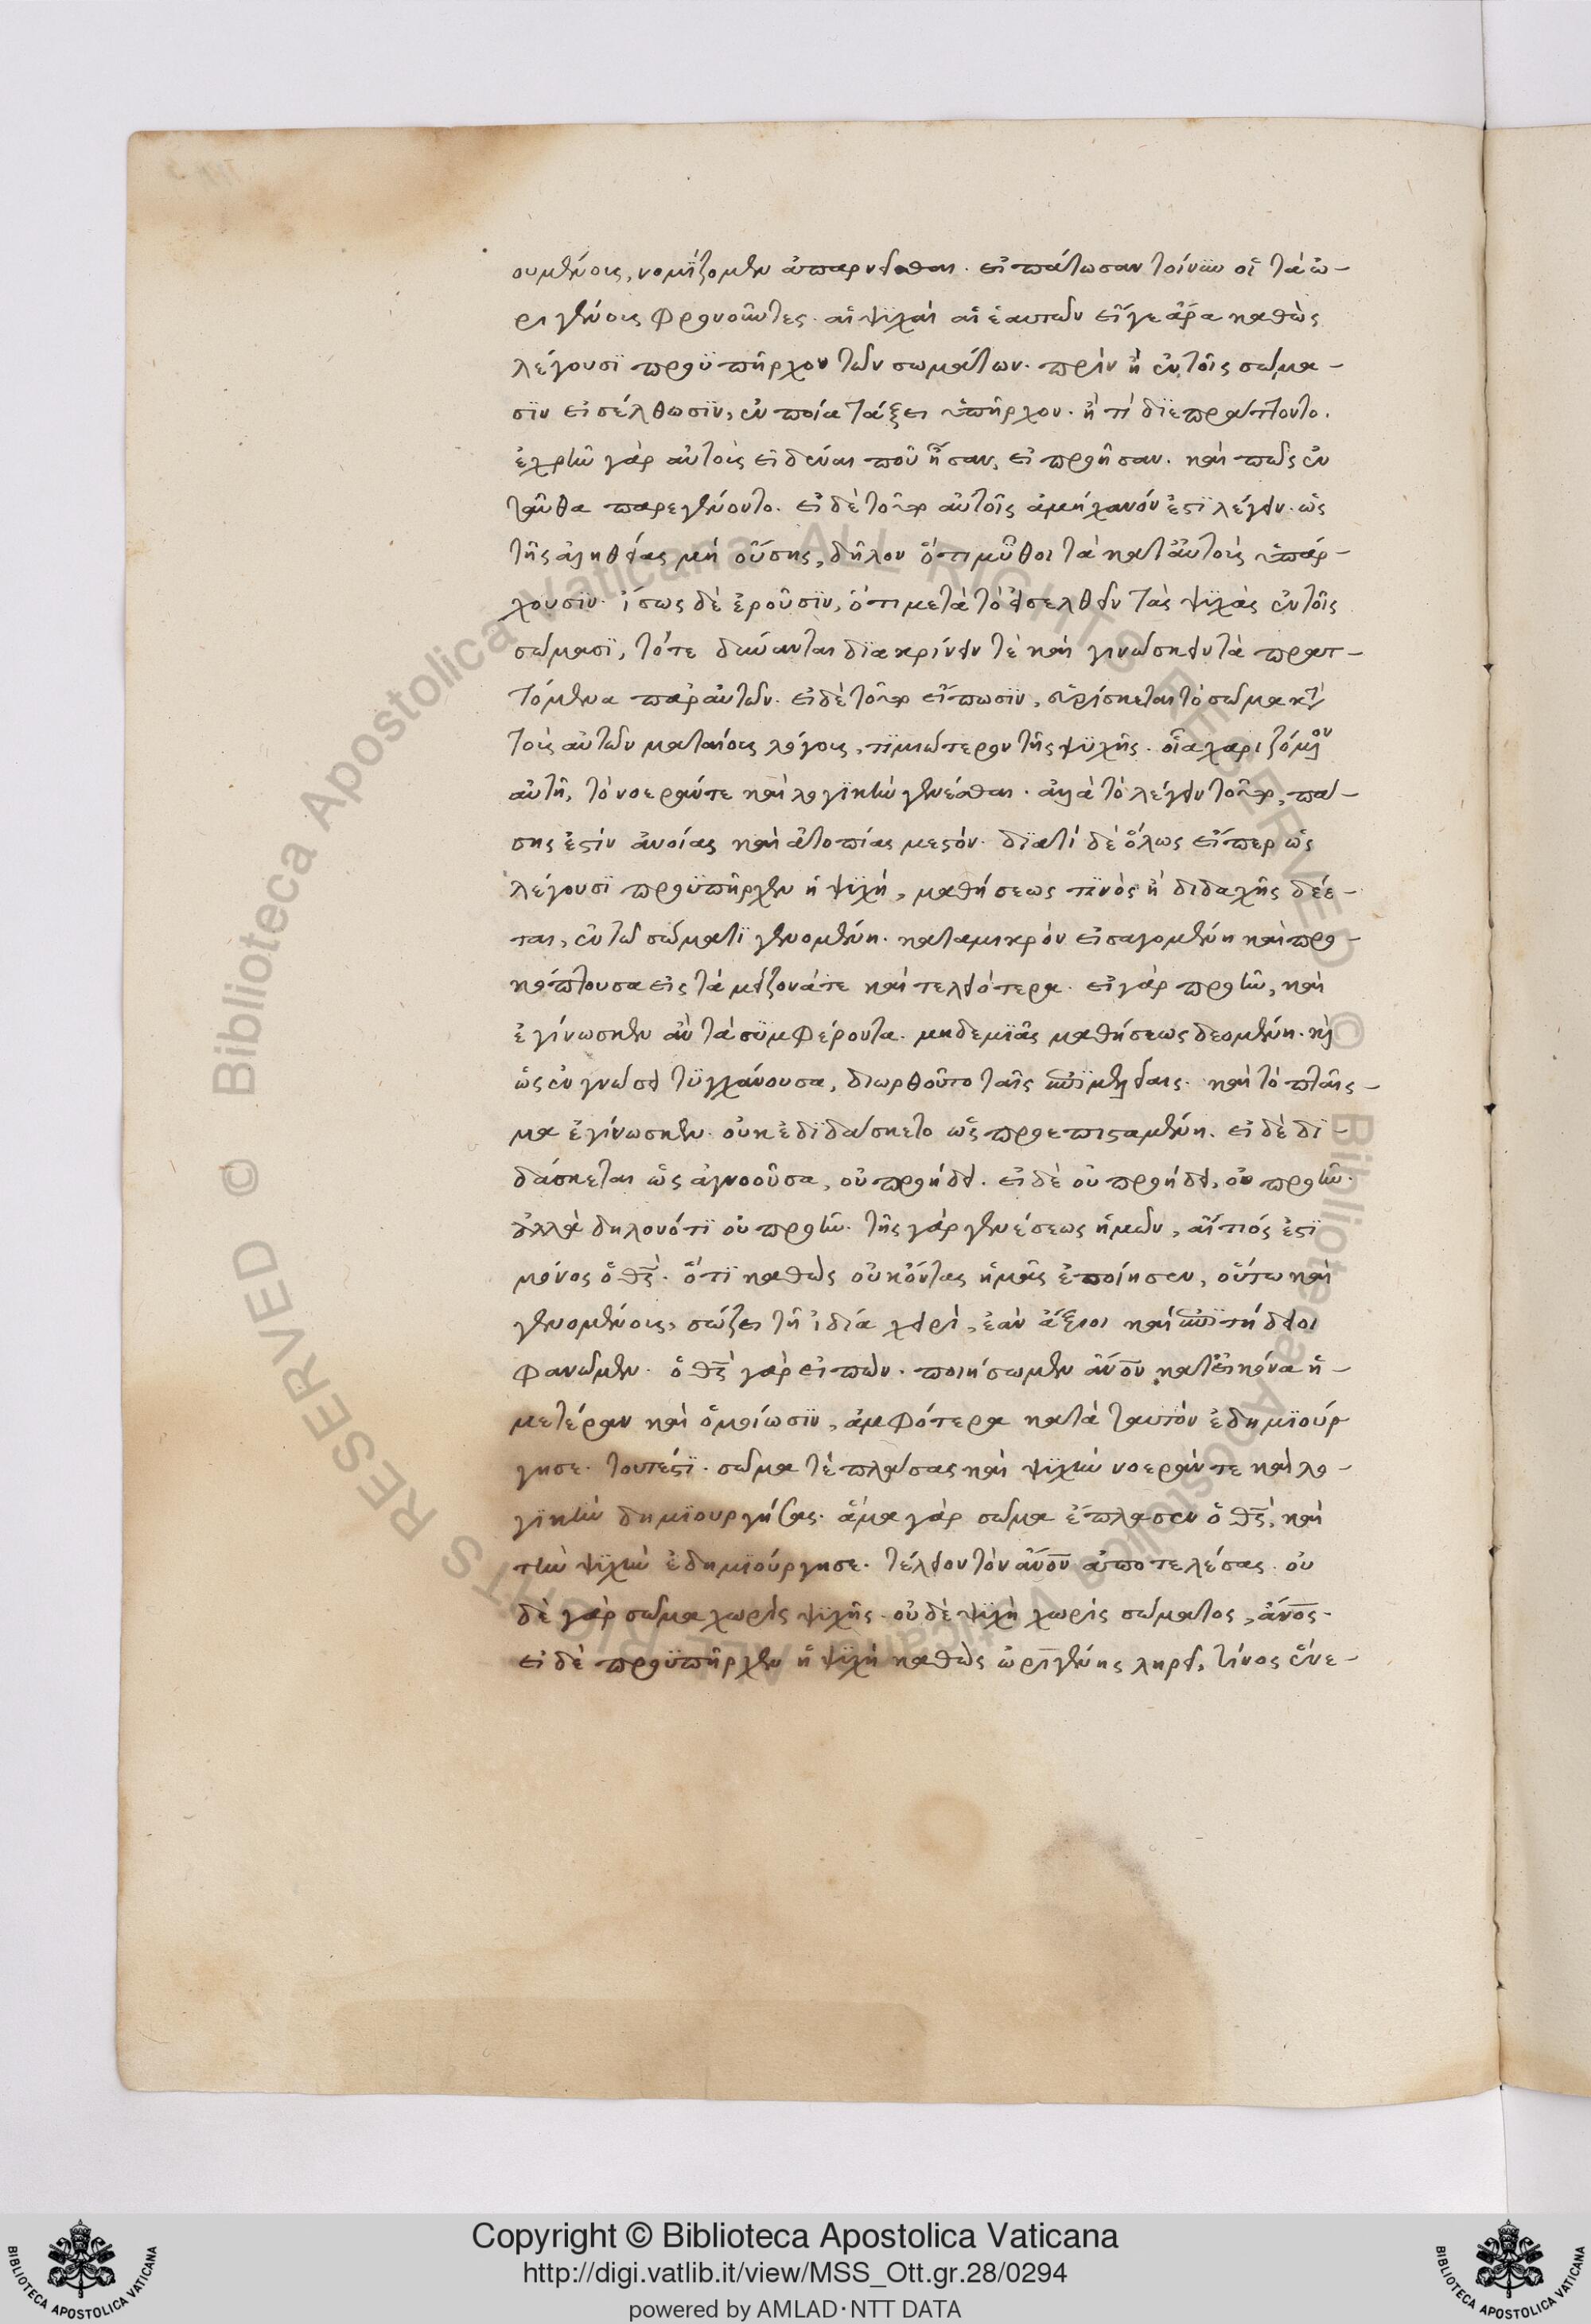 ουμένοις, νομίζομεν ἀπαρνεῖσθαι. εἰπάτωσαν τοίνυν οἱ τὰ ὠ-
ριγένους φρονοῦντες. αἱ ψυχαὶ αἱ ἑαυτῶν εἴγε ἄρα καθὼς
λέγουσϊ προϋπῆρχον τῶν σωμάτων. πρὶν ἢ ἐν τοῖς σώμα-
σϊν εἰσέλθωσϊν, ἐν ποία τάξει ὑπῆρχον. ἢ τί δϊεπράττοντο.
ἐχρῆν γὰρ αὐτοὺς εἰδέναι ποῦ ἦσαν, εἰ προῆσαν. καὶ πῶς ἐν
ταῦθα παρεγένοντο. εἰ δὲ τοῦτο αὐτοῖς ἀμήχανόν ἐστϊ λέγειν. ὡς
τῆς ἀληθείας μὴ οὔσης, δῆλον ὅτι μῦθοι τὰ κατ' αὐτοὺς ὑπάρ-
χουσϊν. ἴσως δὲ ἐροῦσϊν, ὅτι μετὰ τὸ εἰσελθεῖν τὰς ψϋχὰς ἐν τοῖς
σώμασϊ, τότε δύνανται δϊακρίνειν τὲ καὶ γινώσκειν τὰ πρατ-
τόμενα παρ' αὐτῶν. εἰ δὲ τοῦτο εἴπωσϊν, εὑρίσκεται τὸ σῶμα κτ̀
τοὺς αὐτῶν ματαίους λόγους, τϊμιώτερον τῆς ψϋχῆς. οἷα χαριζόμενον
αὐτῆ, τὸ νοεράν τε καὶ λογϊκὴν γενέσθαι. ἀλλὰ τὸ λέγειν τοῦτο, πά-
σης ἐστὶν ἀνοίας καὶ ἀτοπίας μεστόν. δϊατί δὲ ὅλως εἴπερ ὡς
λέγουσϊ προϋπῆρχεν ἡ ψϋχή, μαθήσεως τϊνὸς ἢ διδαχῆς δέε-
ται, ἐν τῶ σώματϊ γενομένη. καταμικρὸν εἰσαγομένη καὶ προ-
κόπτουσα εἰς τὰ μείζονά τε καὶ τελειότερα. εἰ γὰρ προῆν, καὶ
ἐγίνωσκεν ἂν τὰ συμφέροντα. μηδεμϊᾶς μαθήσεως δεομένη. κὶ
ὡς ἐν γνώσει τϋγχάνουσα, διωρθοῦτο ταῖς ἐπϊμελείαις. καὶ τὸ πταῖς-
μα ἐγίνωσκεν. οὐκ ἐδϊδάσκετο ὡς προεπισταμένη. εἰ δὲ δϊ-
δάσκεται ὡς ἀγνοοῦσα, οὐ προήδει. εἰ δὲ οὐ προήδει, οὐ προῆν.
ἀλλὰ δηλονότϊ οὐ προῆν. τῆς γὰρ γενέσεως ἡμῶν, αἴτιός ἐστϊ
μόνος ὁ θς̅. ὅτϊ καθὼς οὐκ ὄντας ἡμᾶς ἐποίησεν, οὕτω καὶ
γενομένους, σώζει τῆ ἰδία χειρί, ἐὰν ἄξιοι καὶ ἐπϊτήδειοι
φανῶμεν. ὁ θς̅ γὰρ εἰπών. ποιήσωμεν ἄν̅ον κατ' εἰκόνα ἡ-
μετέραν καὶ ὁμοίωσϊν, ἀμφότερα κατὰ ταυτὸν ἐδημϊούρ
γησε. τουτέστϊ. σῶμα τὲ πλάσας καὶ ψϋχὴν νοεράν τε καὶ λο-
γϊκὴν δημϊουργήσας. ἅμα γὰρ σῶμα ἔπλασεν ὁ θς̅, καὶ
τὴν ψϋχὴν ἐδημϊούργησε. τέλειον τὸν ἄν̅ον ἀποτελέσας. οὐ
δὲ γὰρ σῶμα χωρὶς ψϋχῆς. οὐδὲ ψϋχὴ χωρὶς σώματος, ἄν̅ος.
εἰ δὲ προϋπῆρχεν ἡ ψϋχὴ καθὼς ὠριγένης ληρεῖ, τίνος ἕνε-
Copyright © Biblioteca Apostolica Vaticana
http://digi.vatlib.it/view/MSS_Ott.gr.28/0294
powered by AMLAD·NTT DATA